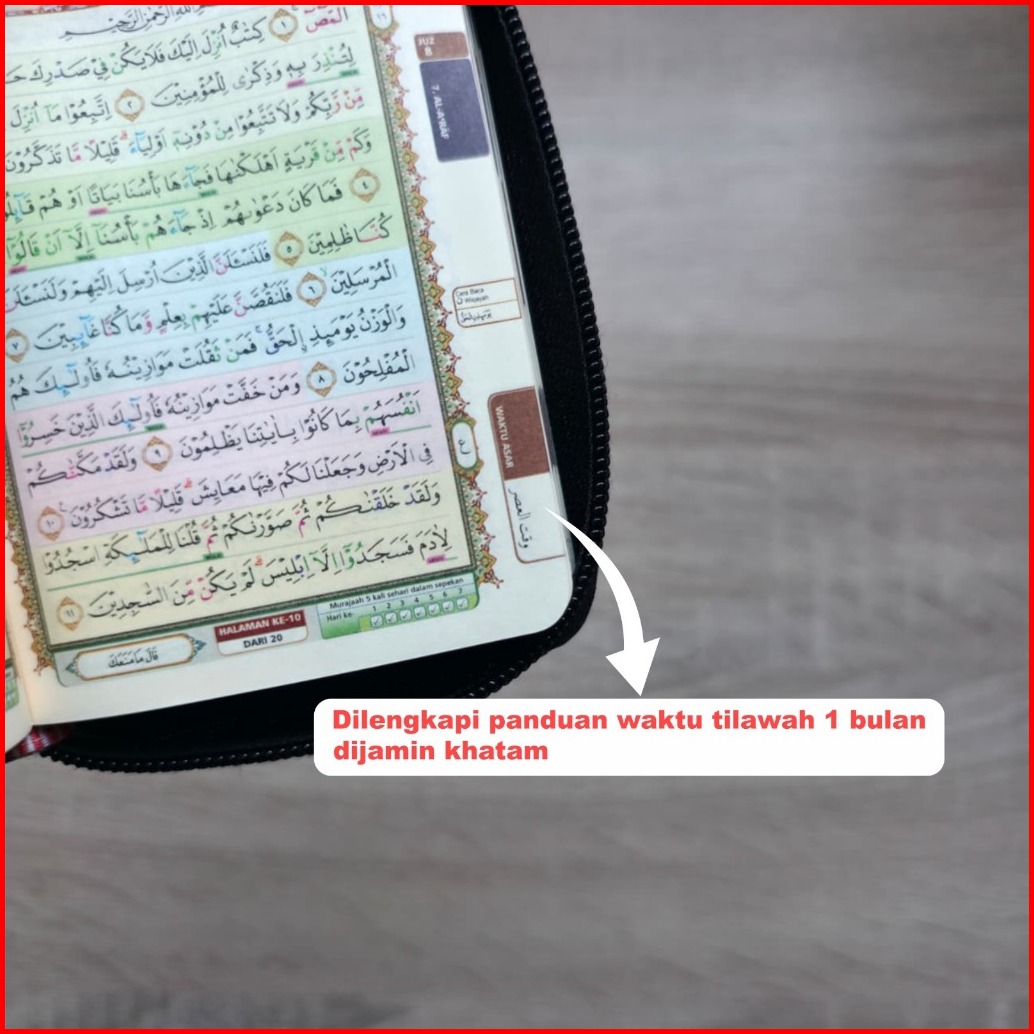 الرحمن الرحيم
الۤمّۤصۤ ۝١ كِتٰبٌ اُنْزِلَ اِلَيْكَ فَلَا يَكُنْ فِيْ صَدْرِكَ
لِتُنْذِرَ بِهٖ وَذِكْرٰى لِلْمُؤْمِنِيْنَ ۝٢ اِتَّبِعُوْا مَآ اُنْزِلَ
مِّنْ رَّبِّكُمْ وَلَا تَتَّبِعُوْا مِنْ دُوْنِهٖٓ اَوْلِيَاۤءَۗ قَلِيْلًا مَّا تَذَكَّرُوْنَ
وَكَمْ مِّنْ قَرْيَةٍ اَهْلَكْنٰهَا فَجَاۤءَهَا بَأْسُنَا بَيَاتًا اَوْ هُمْ
۝٤ فَمَا كَانَ دَعْوٰىهُمْ اِذْ جَاۤءَهُمْ بَأْسُنَآ اِلَّآ اَنْ قَالُوْٓا
كُنَّا ظٰلِمِيْنَ ۝٥ فَلَنَسْـَٔلَنَّ الَّذِيْنَ اُرْسِلَ اِلَيْهِمْ وَلَنَسْـَٔلَنَّ
الْمُرْسَلِيْنَۙ ۝٦ فَلَنَقُصَّنَّ عَلَيْهِمْ بِعِلْمٍ وَّمَا كُنَّا غَاۤىِٕبِيْنَ ۝٧
وَالْوَزْنُ يَوْمَىِٕذِ ِۨالْحَقُّۚ فَمَنْ ثَقُلَتْ مَوَازِيْنُهٗ فَاُولٰۤىِٕكَ هُمُ
الْمُفْلِحُوْنَ ۝٨ وَمَنْ خَفَّتْ مَوَازِيْنُهٗ فَاُولٰۤىِٕكَ الَّذِيْنَ خَسِرُوْٓا
اَنْفُسَهُمْ بِمَا كَانُوْا بِاٰيٰتِنَا يَظْلِمُوْنَ ۝٩ وَلَقَدْ مَكَّنّٰكُمْ
فِى الْاَرْضِ وَجَعَلْنَا لَكُمْ فِيْهَا مَعَايِشَۗ قَلِيْلًا مَّا تَشْكُرُوْنَ ۝١٠
وَلَقَدْ خَلَقْنٰكُمْ ثُمَّ صَوَّرْنٰكُمْ ثُمَّ قُلْنَا لِلْمَلٰۤىِٕكَةِ اسْجُدُوْا
لِاٰدَمَ فَسَجَدُوْٓا اِلَّآ اِبْلِيْسَۗ لَمْ يَكُنْ مِّنَ السّٰجِدِيْنَ ۝١١
JUZ
8
7. AL-A'RAF
Cara Baca
WAKTU ASAR
وقت العصر
ع
Murajaah 5 kali sehari dalam sepekan
Hari ke- 1 2 3 4 5 6 7
HALAMAN KE-10
DARI 20
قَالَ مَا مَنَعَكَ
Dilengkapi panduan waktu tilawah 1 bulan
dijamin khatam